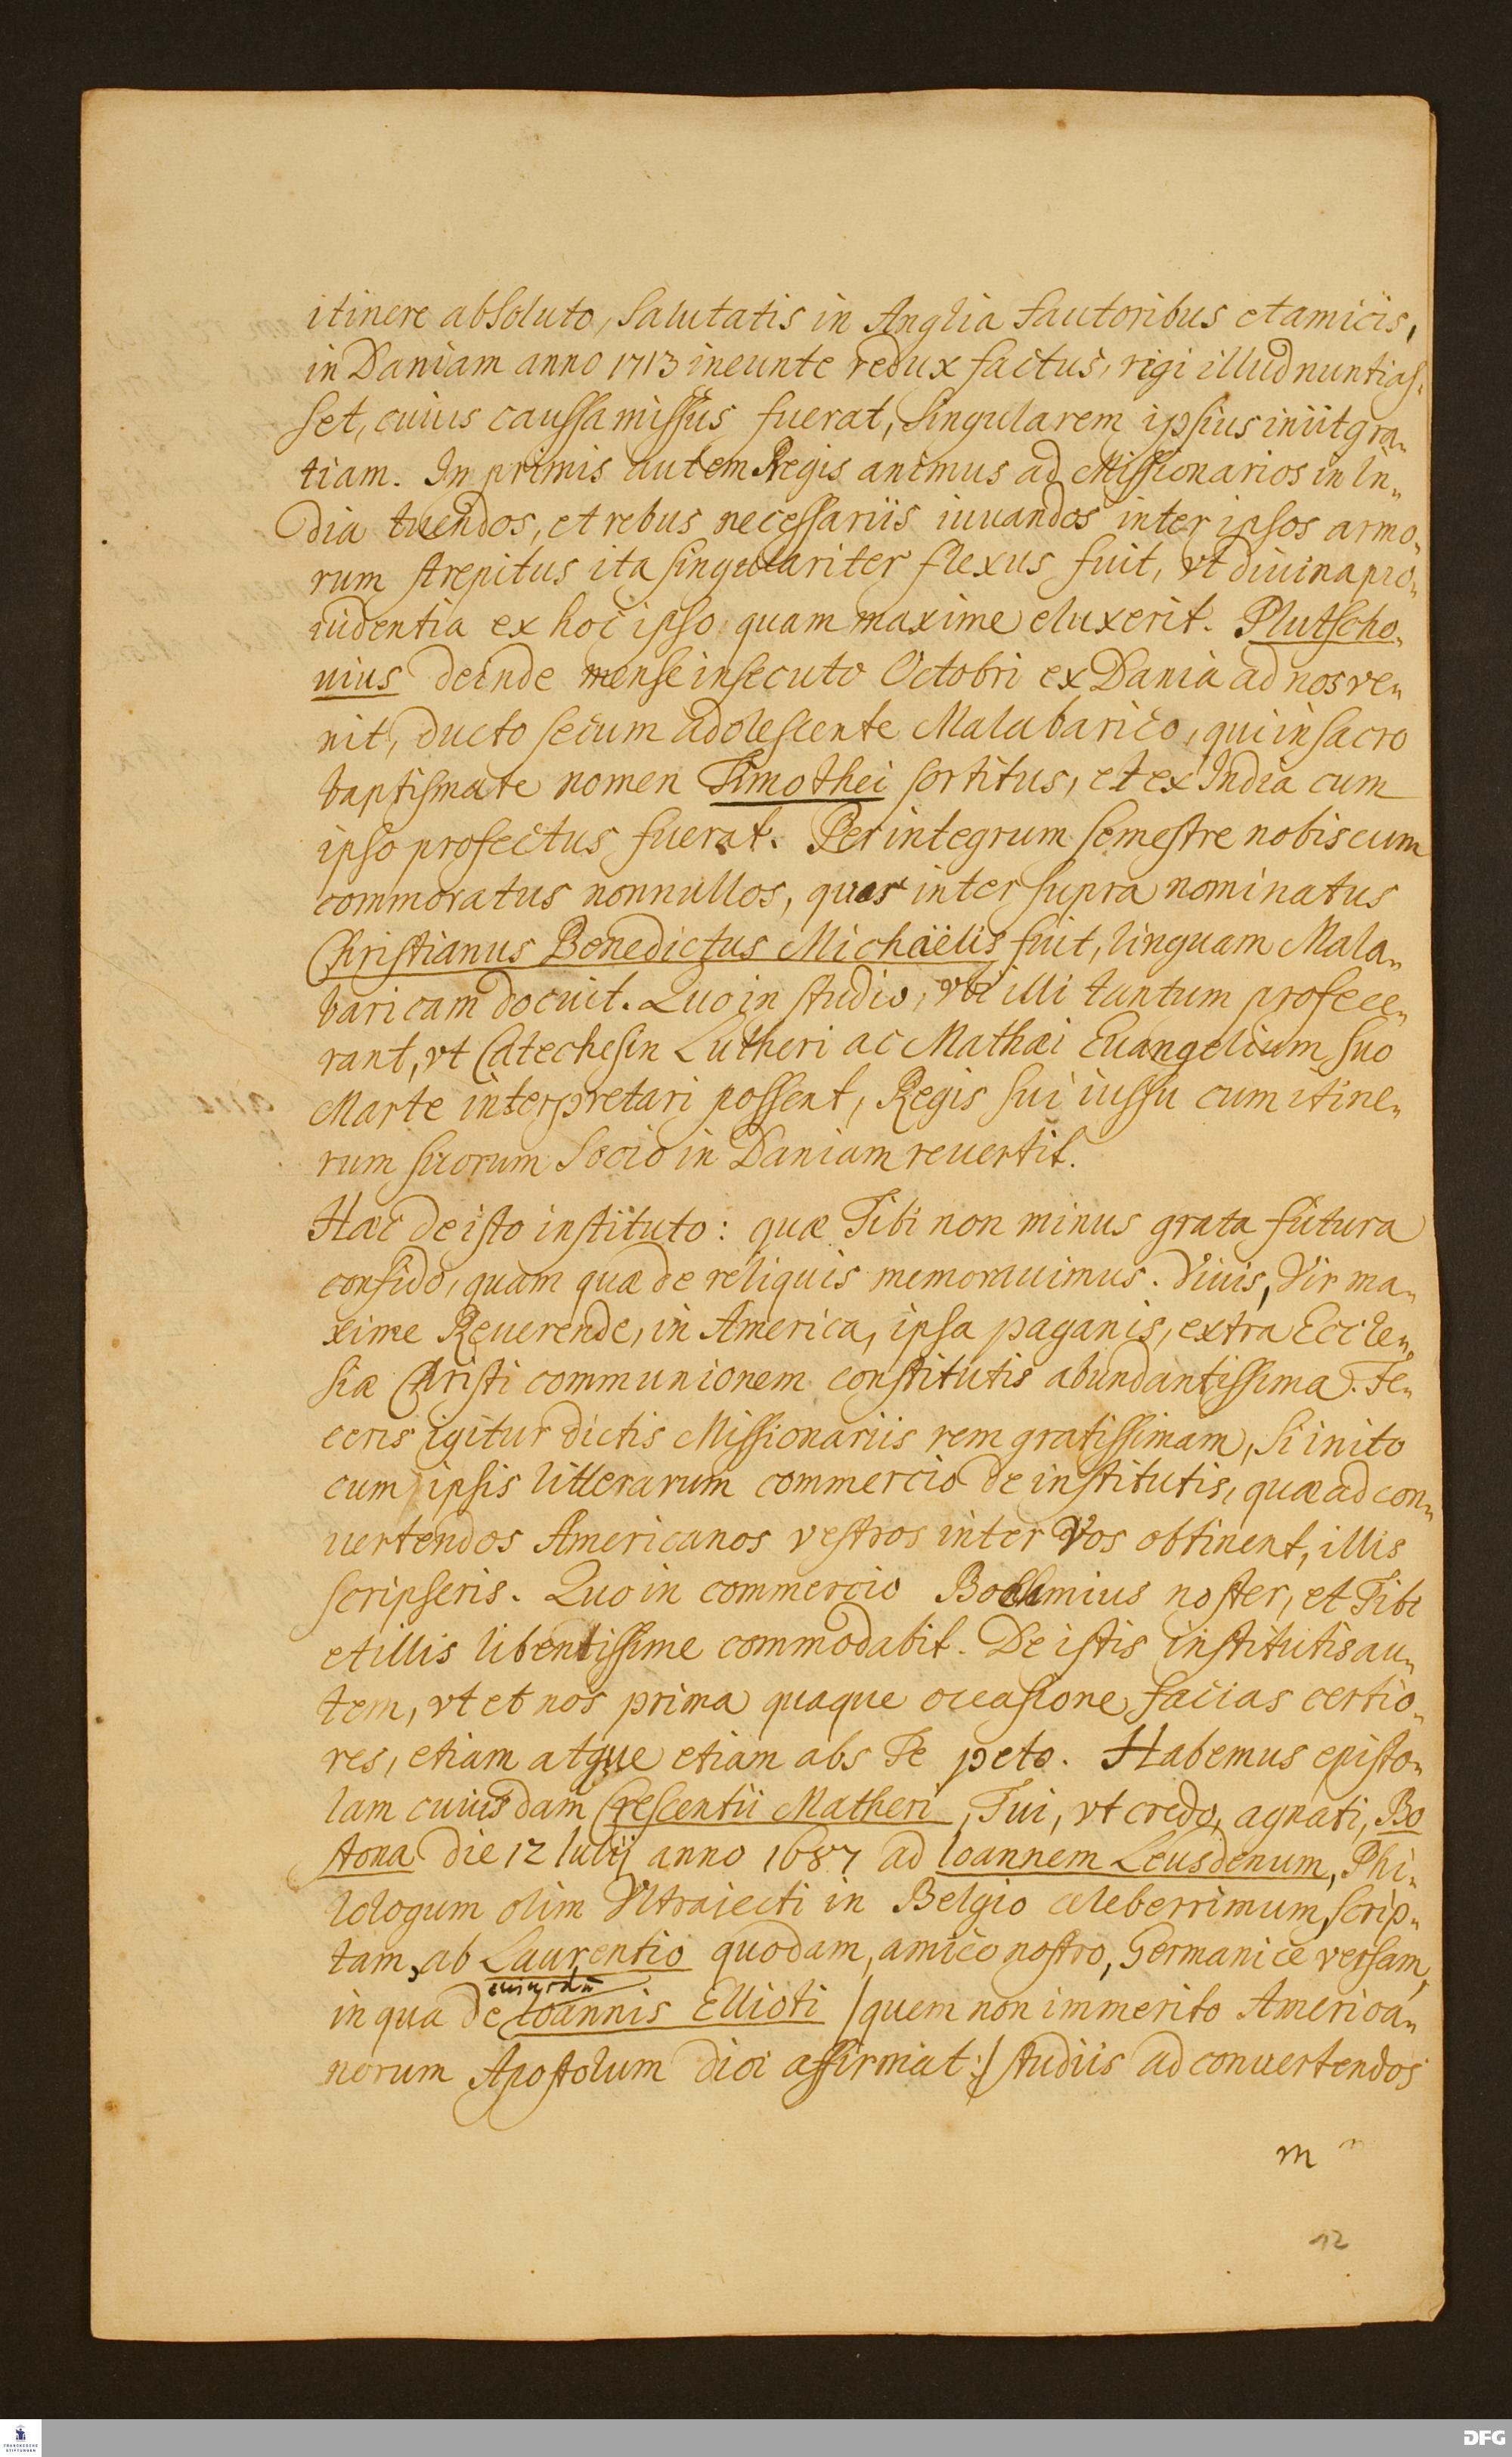 itinere absoluto, salutatis in Anglia fautoribus et amicis,
in Daniam anno 1713 ineunte redux factus, rigi illud nuntias-
set, cuius caussa missus fuerat, singularem ipsius iniit gra-
tiam. In primis autem Regis animus ad Missionarios in In-
dia tuendos, et rebus necessariis iuuandos inter ipsos armo-
rum strepitus ita singulariter flexus fuit, vt diuina pro-
uidentia ex hoc ipso quam maxime eluxerit. Plutscho-
uius deinde mense insecuto Octobri ex Dania ad nos ve-
nit, ducto secum adolescente Malabarico, qui in sacro
baptismate nomen Timothei sortitus, et ex India cum
ipso profectus fuerat. Per integrum semestre nobiscum
commoratus nonnullos, quos inter supra nominatus
Christianus Benedictus Michaëlis fuit, linguam Mala-
baricam docuit. Quo in studio, vbi illi tantum profece-
rant, vt Catechesin Lutheri ac Mathæi Euangelium suo
Marte interpretari possent, Regis sui iussu cum itine-
rum suorum socio in Daniam reuertit.
Hæc de isto instituto: quæ Tibi non minus grata futura
confido, quam quæ de reliquis memorauimus. Viuis, Vir ma-
xime Reuerende, in America, ipsa paganis, extra Eccle-
siæ Christi communionem constitutis abundantissima. Fe-
ceris igitur dictis Missionariis rem gratissimam, si inito
cum ipsis litterarum commercio de institutis, quæ ad con-
uertendos Americanos vestros inter Vos obtinent, illis
scripseris. Quo in commercio Boehmius noster, et Tibi
et illis libentissime commodabit. De istis institutis au-
tem, vt et nos prima quaque occasione facias certio-
res, etiam atque etiam abs Te peto. Habemus episto-
lam cuiusdam Crescentii Matheri, Tui, vt credo, agnati, Bo
stona die 12 Iulij anno 1687 ad Ioannem Leusdenum, Phi-
lologum olim Vltraiecti in Belgio celeberrimum, scrip-
tam, ab Laurentio quodam, amico nostro, Germanice versam,
cuiusdā
in qua de Ioannis Ellioti /quem non immerito America-
norum Apostolum dici affirmat:/ studiis ad conuertendos
m
12
DFG